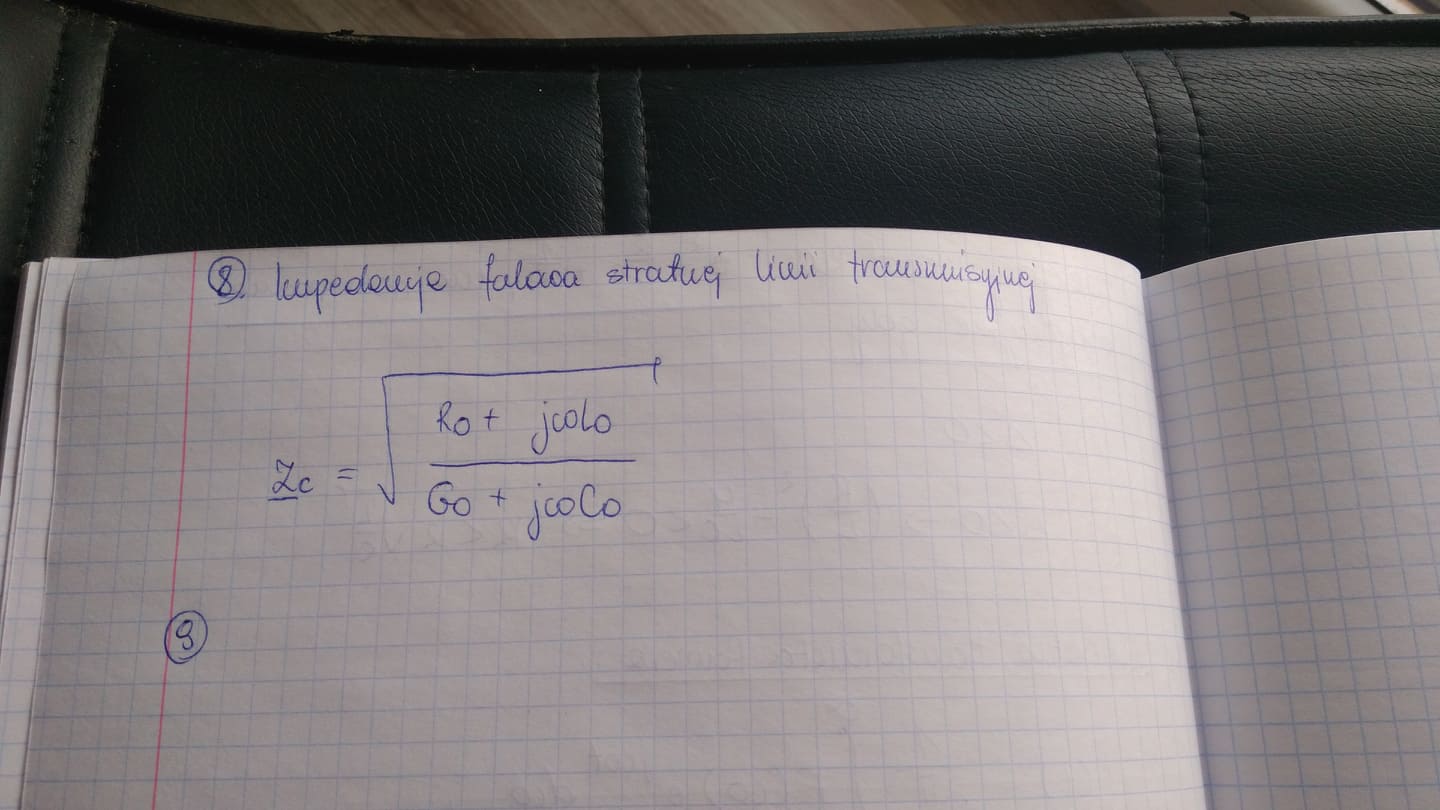 8. Impedancja falowa stratnej linii transmisyjnej
Zc = √((R0 + jωL0) / (G0 + jωC0))
9